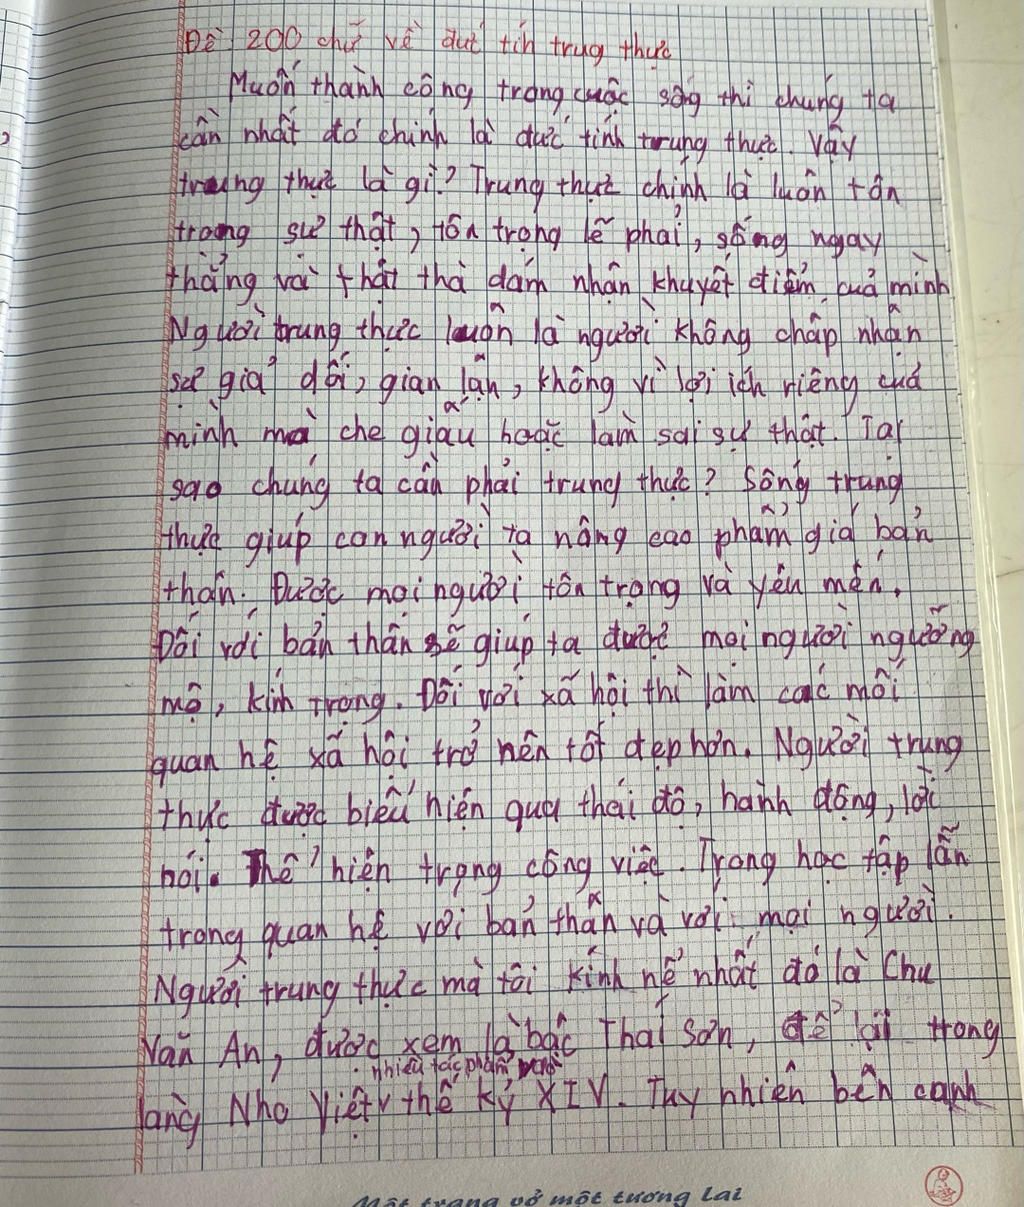 Đề 200 chữ về đức tính trung thực
Muốn thành công trong cuộc sống thì chúng ta
cần nhất đó chính là đức tính trung thực. Vậy
trung thực là gì? Trung thực chính là luôn tôn
trọng sự thật, tôn trọng lẽ phải, sống ngay
thẳng và thật thà dám nhận khuyết điểm của mình
Người trung thực luôn là người không chấp nhận
sự giả dối, gian lận, không vì lợi ích riêng của
mình mà che giấu hoặc làm sai sự thật. Tại
sao chúng ta cần phải trung thực? Sống trung
thực giúp con người ta nâng cao phẩm giá bản
thân. Được mọi người tôn trọng và yêu mến.
Đối với bản thân sẽ giúp ta được mọi người ngưỡng
mộ, kính trọng. Đối với xã hội thì làm các mối
quan hệ xã hội trở nên tốt đẹp hơn. Người trung
thực được biểu hiện qua thái độ, hành động, lời
nói. Thể hiện trong công việc. Trong học tập lẫn
trong quan hệ với bản thân và với mọi người.
Người trung thực mà tôi kính nể nhất đó là Chu
Văn An, được xem là bậc Thái Sơn, để lại trong
nhiều tác phẩm
làng Nho Việt thế kỷ XIV. Tuy nhiên bên cạnh
Một trang vở một tương lai